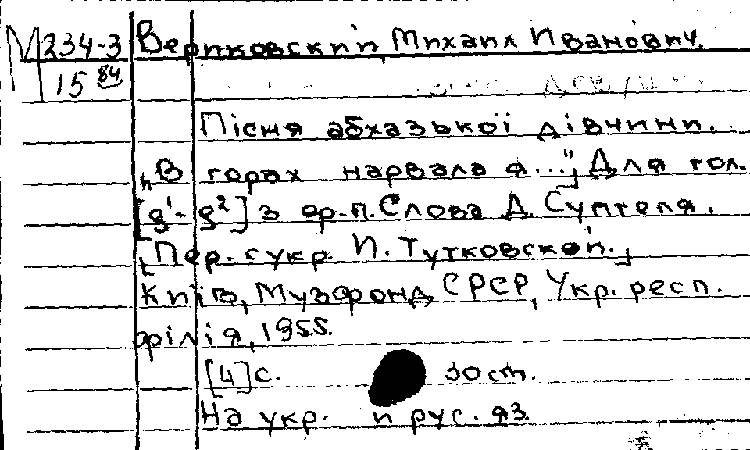 М 234-3 Вериковский, Михаил Иванович.
15 84
Пісня абхазької дівчини.
„В горах нарвала я...", Для гол.
[g¹-g²] з ф.-п. Слова Д. Суптеля.
[Пер. с укр. И. Тутковской.]
Київ, Музфонд СРСР, Укр. респ.
філія, 1955.
[4] с. 30 см.
На укр. и рус. яз.